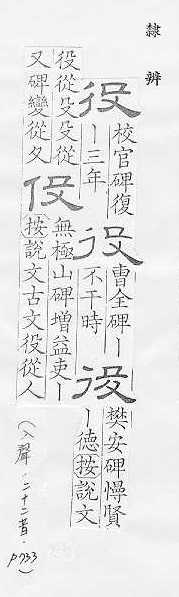 隸辨
役
校官碑復
｜三年
役
曹全碑｜
不干時
役
樊安碑憚賢
｜德按說文
役從殳殳從
又碑變從夂
伇
無極山碑增益吏｜
按說文古文役從人
(入聲·二十二昔·p733)